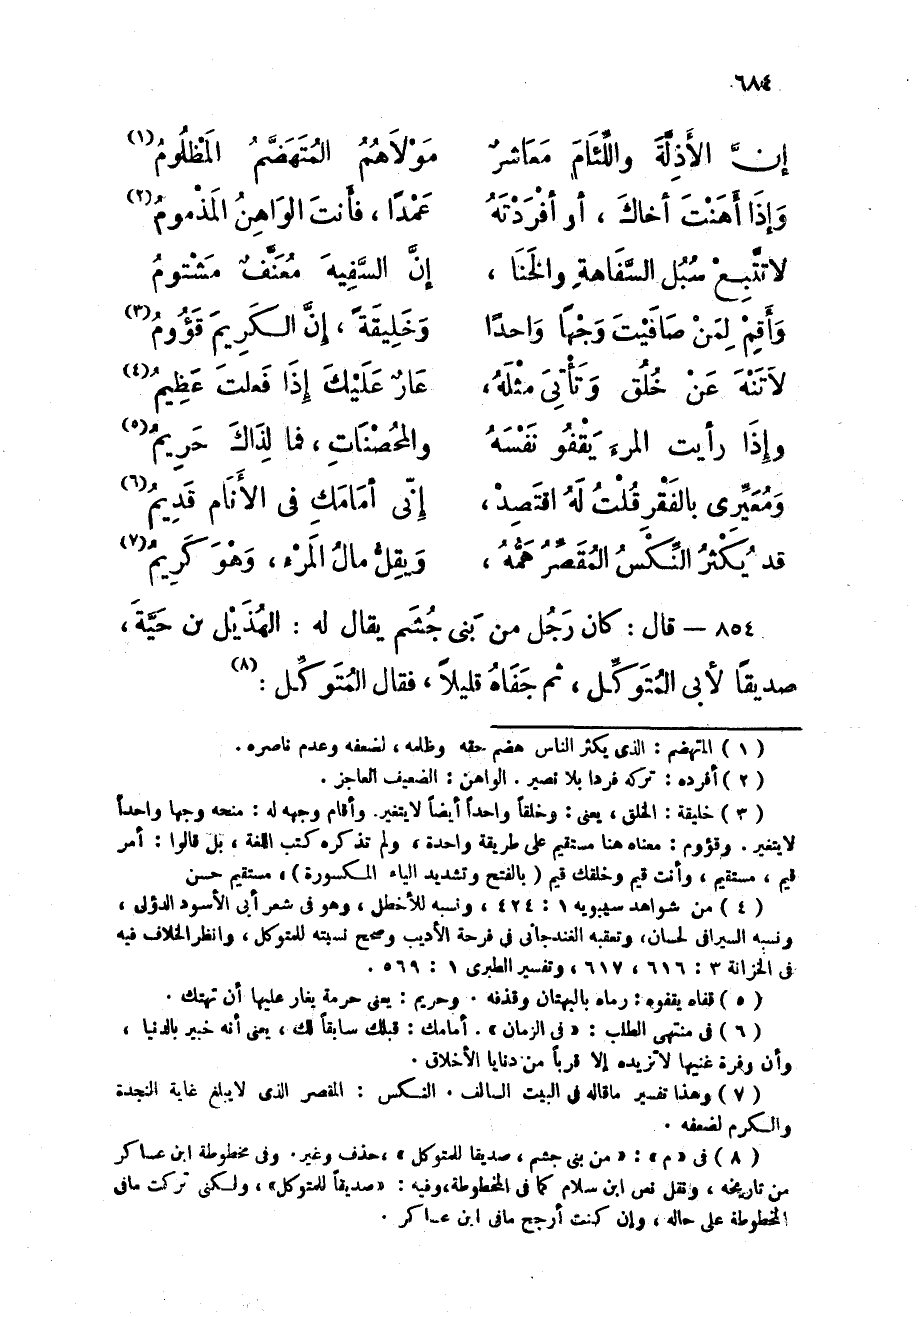 ٦٨٤
إنَّ الأَذِلَّةَ واللِّئَامَ مَعَاشرٌ مَوْلاَهُمُ المُتَهَضَّمُ المَظْلُومُ (١)
وَإِذَا أَهَنْتَ أخاكَ ، أو أفْرَدْتَهُ عَمْدًا ، فأَنتَ الوَاهِنُ المَذْمومُ (٢)
لاتتَّبِعْ سُبُلَ السَّفَاهةِ والخَنَا ، إنَّ السَّفِيهَ مُعَنَّفٌ مَشْتومُ
وَأَقِمْ لِمَنْ صَافَيْتَ وَجْهًا وَاحدًا وَخَلِيقَةً ، إنَّ الكَرِيمَ قَؤُومُ (٣)
لاَتَنْهَ عَنْ خُلُقٍ وَتَأْتِىَ مثْلَهُ، عَارٌ عَلَيْكَ إِذَا فَعلتَ عَظِيمُ (٤)
وإِذَا رأيت المرءَ يَقْفُو نَفْسَهُ والمُحْصْنَاتِ ، فما لِذَاكَ حَرِيمُ (٥)
وَمُعَيِّرِى بالفَقْرِ قُلْتُ لَهُ اقتَصِدْ ، إنِّى أمَامَكِ فى الأَنَام قَدِيمُ (٦)
قد يُكْثرُ النِّكْسُ المُقَصِّرُ هَمُّهُ ، وَيَقِلُّ مالُ المَرْء ، وَهْوَ كَرِيمُ (٧)
٨٥٤ — قال : كان رَجُل من بَنى جُشَم يقال له : الهُذَيْل بن حَيَّةَ ،
صديقًا لأبى المُتَوَكِّل ، ثم جَفَاهُ قليلاً ، فقال المُتَوَكِّل : (٨)
( ١ ) المتهضم : الذى يكثر الناس هضم حقه وظلمه ، لضعفه وعدم ناصره .
( ٢ ) أفرده : تركه فردا بلا نصير . الواهن : الضعيف العاجز .
( ٣ ) خليقة : الخلق ، يعنى : وخلقاً واحداً أيضاً لايتغير. وأقام وجهه له : منحه وجها واحداً
لايتغير . وقؤوم : معناه هنا مستقيم على طريقة واحدة ، ولم تذكره كتب اللغة ، بل قالوا : أمر
قيم ، مستقيم ، وأنت قيم وخلقك قيم ( بالفتح وتشديد الياء المكسورة ) ، مستقيم حسن
( ٤ ) من شواهد سيبويه ١ : ٤٢٤ ، ونسبه للأخطل ، وهو فى شعر أبى الأسود الدؤلى ،
ونسبه السيرافى لحسان، وتعقبه الغندجانى فى فرحة الأديب وصحح نسبته للمتوكل ، وانظر الخلاف فيه
فى الخزانة ٣ : ٦١٦ ، ٦١٧ ، وتفسير الطبرى ١ : ٥٦٩ .
( ٥ ) قفاه يقفوه : رماه بالبهتان وقذفه . وحريم : يعنى حرمة يغار عليها أن تهتك .
( ٦ ) فى منتهى الطلب : « فى الزمان » . أمامك : قبلك سابقاً لك ، يعنى أنه خبير بالدنيا ،
وأن وفرة غنيها لاتزيده إلا قرباً من دنايا الأخلاق .
( ٧ ) وهذا تفسير ماقاله فى البيت السالف . النكس : المقصر الذى لايبلغ غاية النجدة
والكرم لضعفه .
( ٨ ) فى «م» : « من بنى جشم ، صديقا للمتوكل » ،حذف وغير. وفى مخطوطة ابن عساكر
من تاريخه ، ونقل نص ابن سلام كما فى المخطوطة،وفيه : «صديقاً للمتوكل» ، ولكنى تركت مافى
المخطوطة على حاله ، وإن كنت أرجح مافى ابن عساكر .